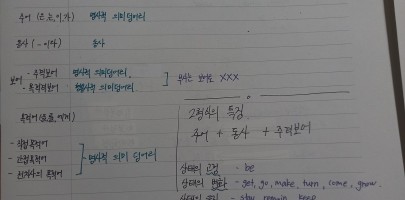 주어 (은,는,이,가) 명사적 의미 덩어리
동사 (~이다) 동사
보어 - 주격보어 명사적 의미 덩어리.
- 목적격보어 형용사적 의미 덩어리
부사는 보어로 XXX
목적어 (을,를,에게)
- 직접목적어
- 간접목적어
- 전치사의 목적어
- 명사적 의미 덩어리
2형식의 특징
주어 + 동사 + 주격보어
상태의 - be
상태의 변화 - get, go, make, turn, come, grow.
상태의 - stay, remain, keep